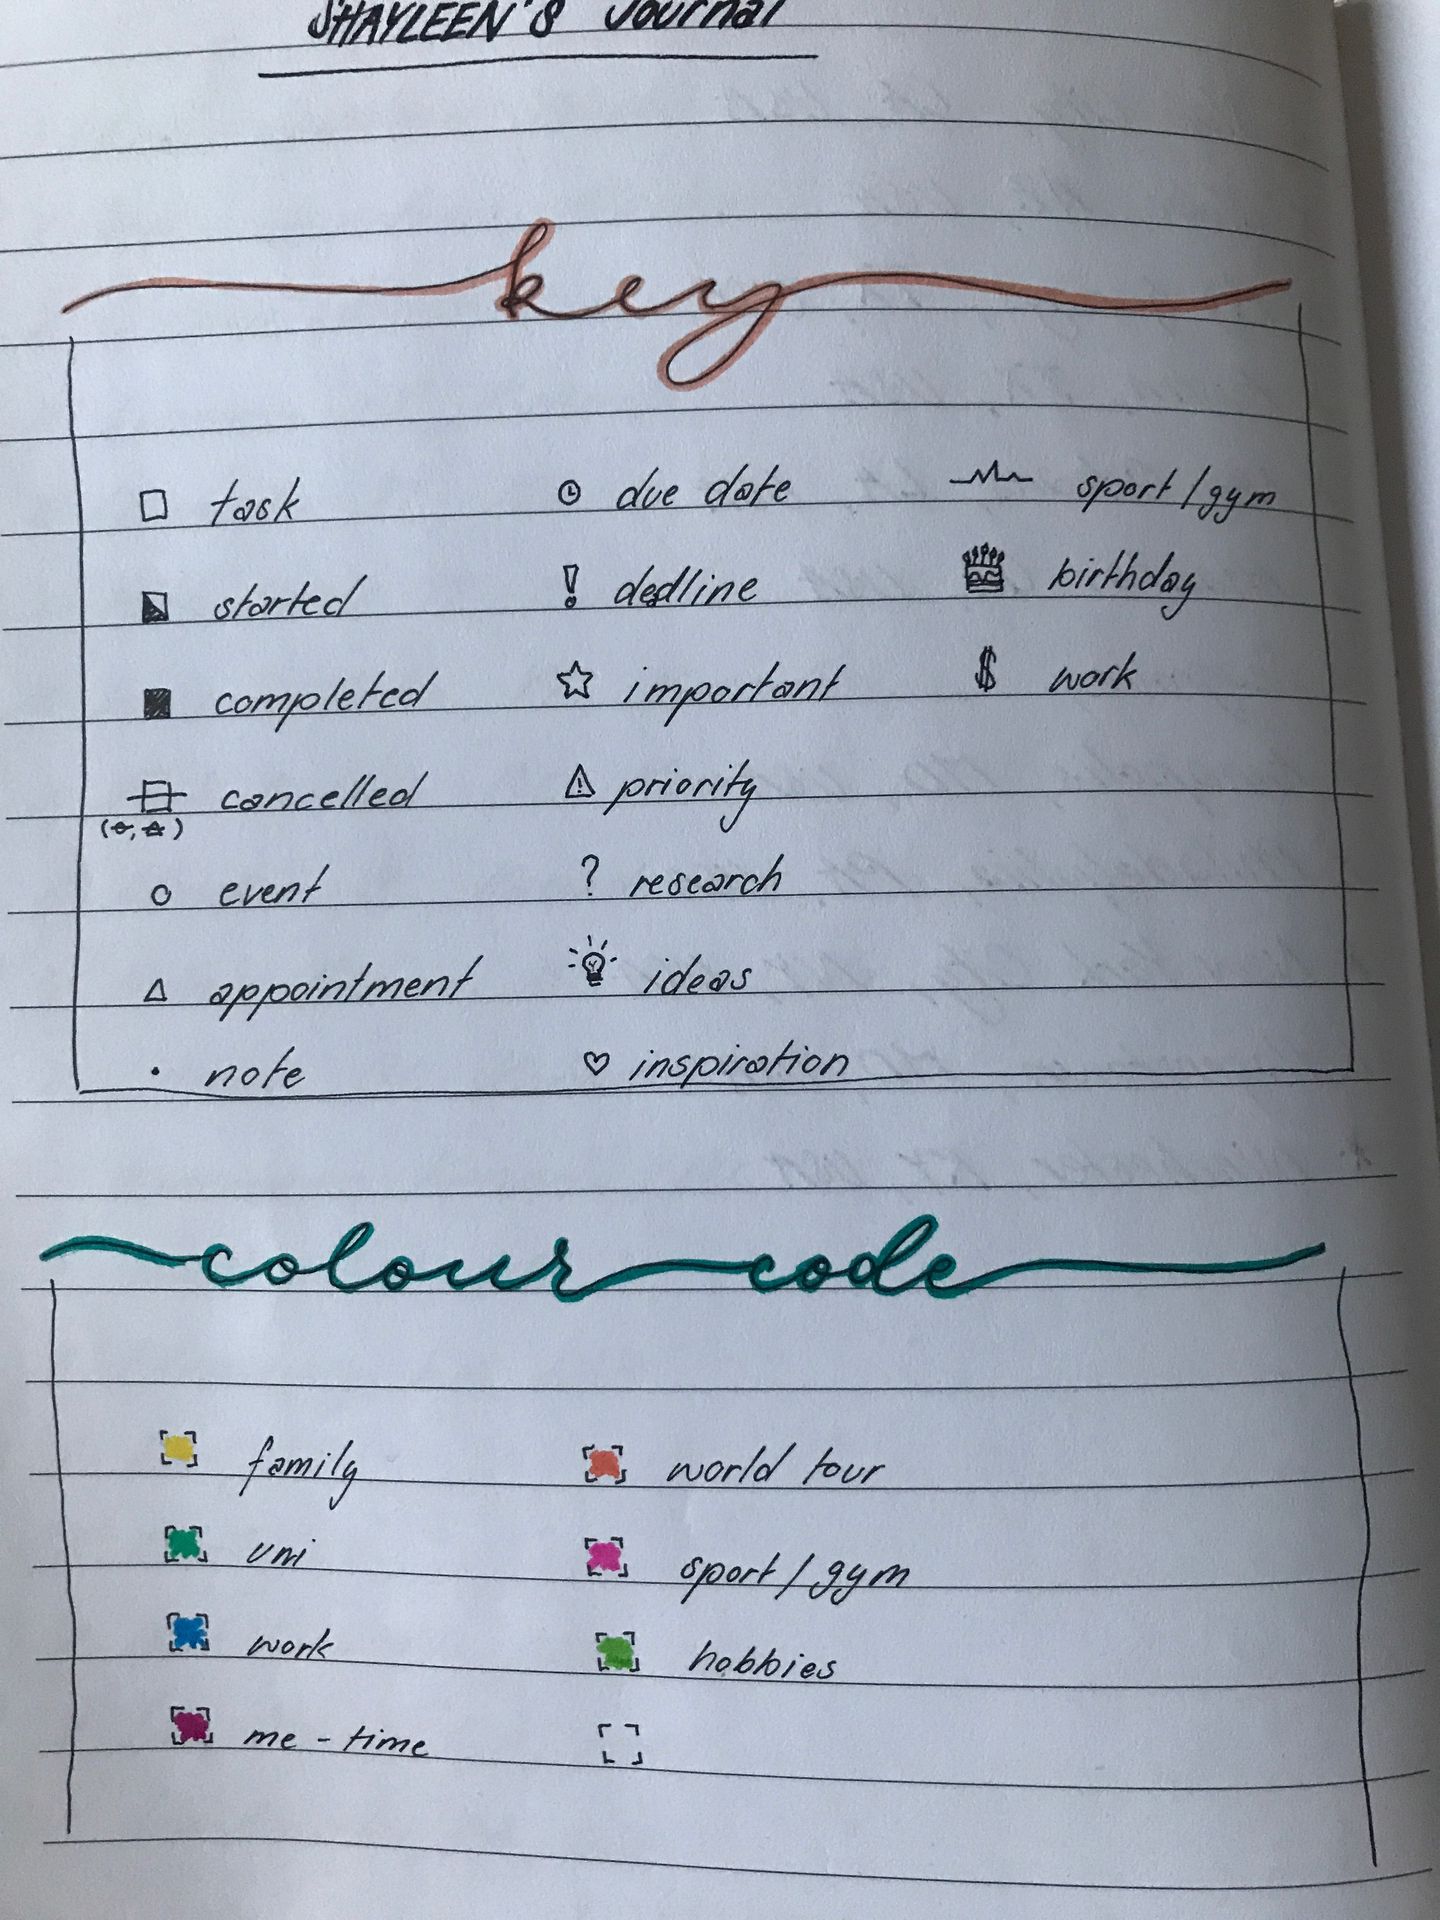 SHAYLEEN'S Journal
key
task
started
completed
cancelled
event
appointment
note
due date
! dedline
important
priority
? research
ideas
inspiration
sport/gym
birthday
$ work
colour code
family
uni
work
me-time
world tour
sport/gym
hobbies